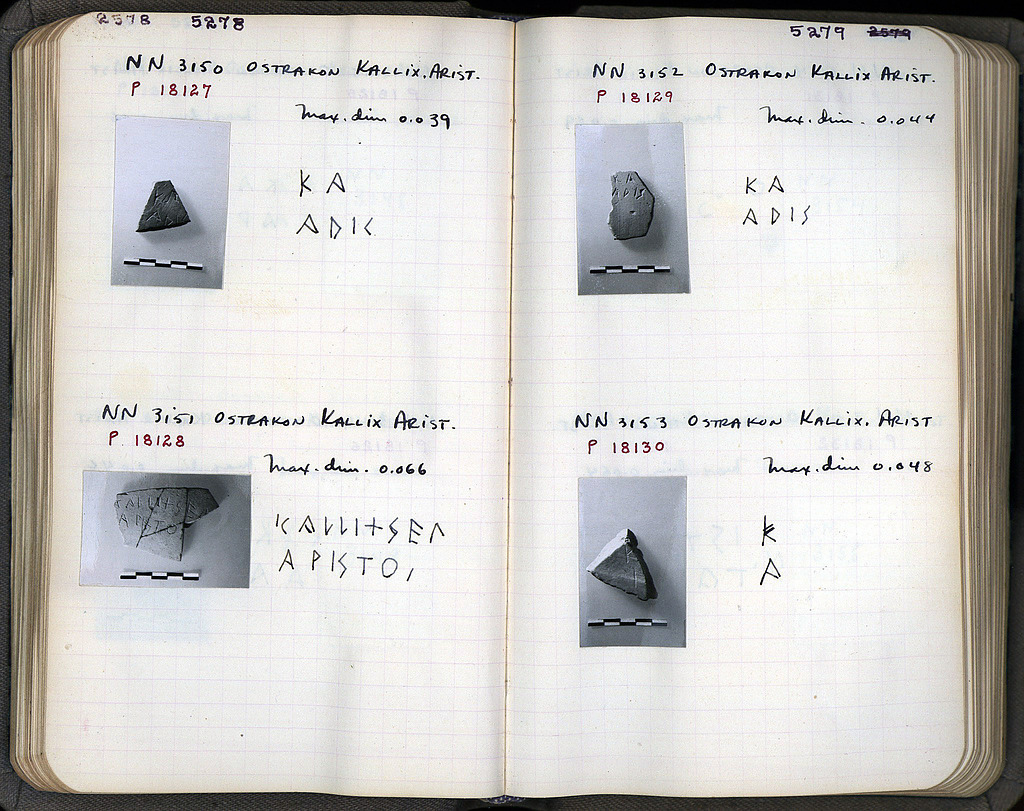 2578 5278
NN 3150 OSTRAKON KALLIX. ARIST.
P 18127
Max. dim 0.039
KA
ADIC
NN 3151 OSTRAKON KALLIX ARIST.
P 18128
Max. dim. 0.066
APISTO
5279 2579
NN 3152 OSTRAKON KALLIX ARIST.
P 18129
Max. dim. 0.044
KA
ADIS
NN 3153 OSTRAKON KALLIX. ARIST
P 18130
Max. dim 0.048
K
A